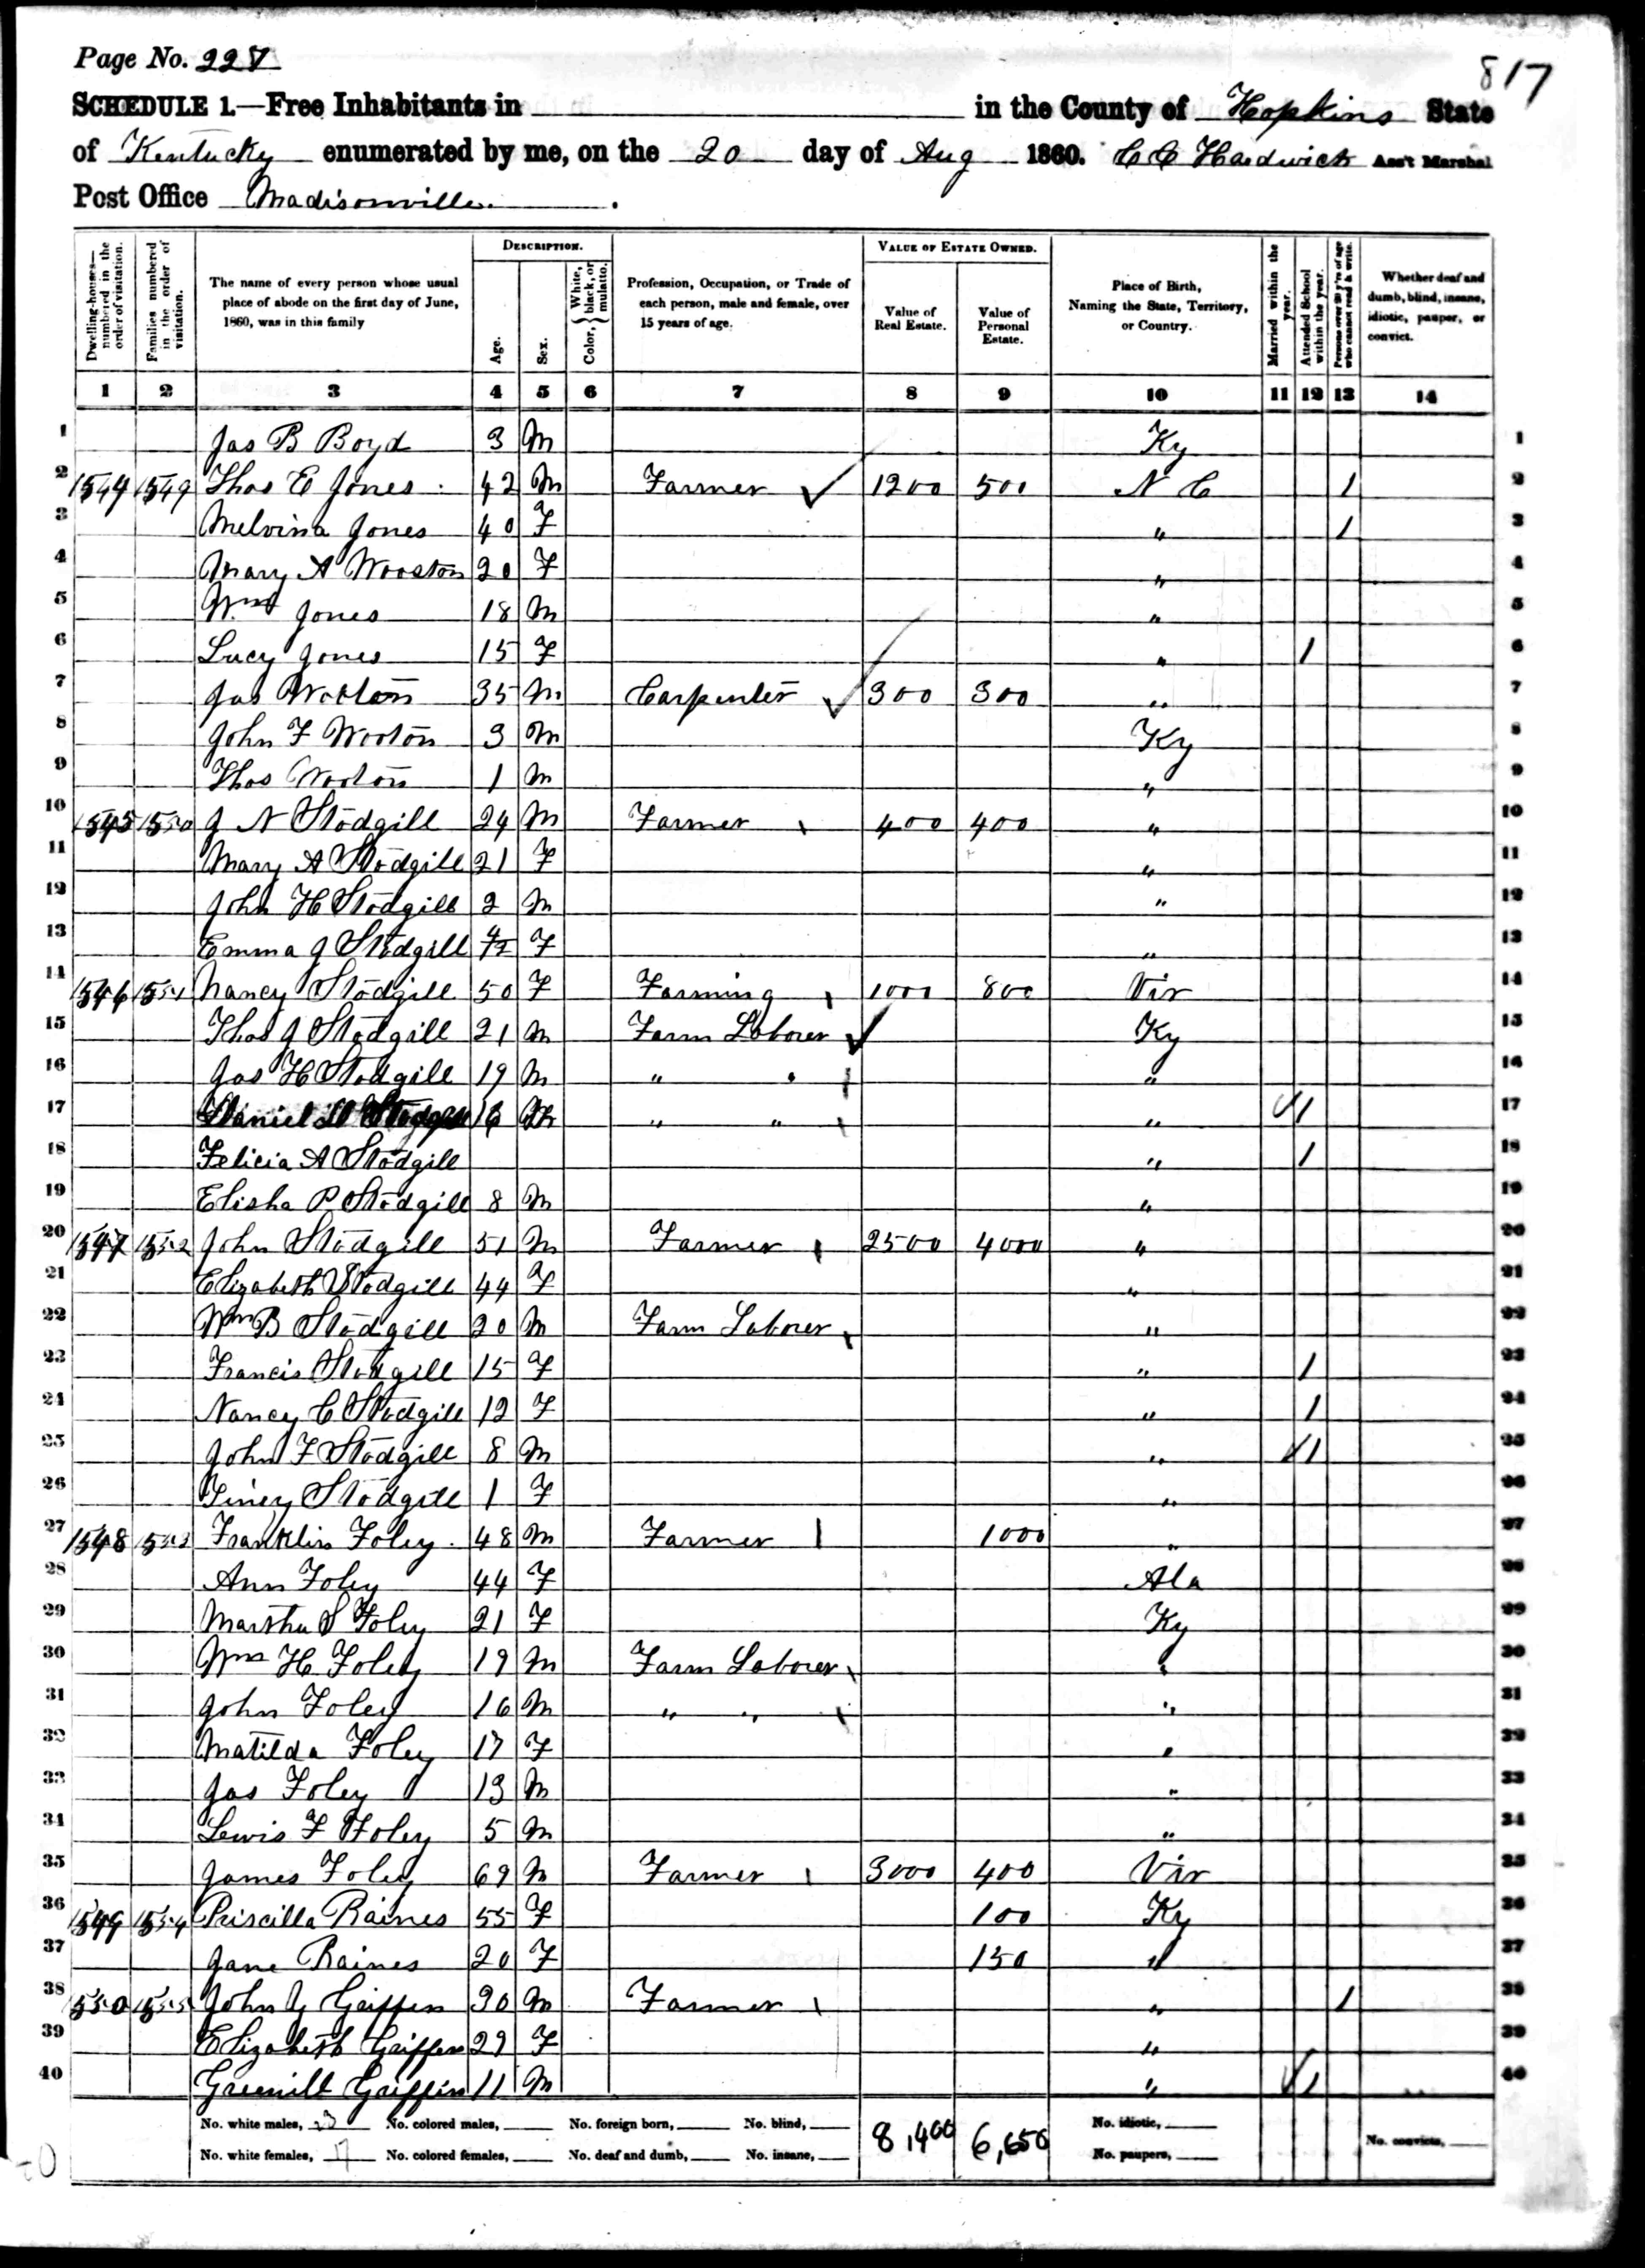 Page No. 227
817
SCHEDULE 1.—Free Inhabitants in in the County of Hopkins State
of Kentucky enumerated by me, on the 20 day of Aug 1860. C C Hardwick Ass't Marshal
Post Office Madisonville.
Dwelling-houses—numbered in the order of visitation.
Families numbered in the order of visitation.
The name of every person whose usual place of abode on the first day of June, 1860, was in this family
DESCRIPTION.
Age.
Sex.
Color, White, black, or mulatto.
Profession, Occupation, or Trade of each person, male and female, over 15 years of age.
VALUE OF ESTATE OWNED.
Value of Real Estate.
Value of Personal Estate.
Place of Birth, Naming the State, Territory, or Country.
Married within the year.
Attended School within the year.
Persons over 20 y'rs of age who cannot read & write.
Whether deaf and dumb, blind, insane, idiotic, pauper, or convict.
1 2 3 4 5 6 7 8 9 10 11 12 13 14
1 Jas B Boyd 3 M Ky 1
2 1544 1549 Thos E Jones 42 M Farmer 1200 500 N C 1 2
3 Melvina Jones 40 F " 1 3
4 Mary A Wooston 20 F " 4
5 Wm Jones 18 M " 5
6 Lucy Jones 15 F " 1 6
7 Jas Wotton 35 M Carpenter 300 300 " 7
8 John F Wooton 3 M Ky 8
9 Thos Wooton 1 M " 9
10 1545 1550 J N Stodgill 24 M Farmer 400 400 " 10
11 Mary A Stodgill 21 F " 11
12 John H Stodgill 2 M " 12
13 Emma J Stodgill F " 13
14 1546 1551 Nancy Stodgill 50 F Farming 1000 800 Vir 14
15 Thos J Stodgill 21 M Farm Laborer Ky 15
16 Jas H Stodgill 19 M " " " 16
17 Daniel Stodgill 16 M " " " 1 17
18 Felicia A Stodgill " 1 18
19 Elisha P Stodgill 8 M " 19
20 1547 1552 John Stodgill 51 M Farmer 2500 4000 " 20
21 Elizabeth Stodgill 44 F " 21
22 Wm B Stodgill 20 M Farm Laborer " 22
23 Francis Stodgill 15 F " 1 23
24 Nancy C Stodgill 12 F " 1 24
25 John F Stodgill 8 M " 1 25
26 Tiney Stodgill 1 F " 26
27 1548 1553 Franklin Foley 48 M Farmer 1000 " 27
28 Ann Foley 44 F Ala 28
29 Martha S Foley 21 F Ky 29
30 Wm H Foley 19 M Farm Laborer " 30
31 John Foley 16 M " " " 31
32 Matilda Foley 17 F " 32
33 Jas Foley 13 M " 33
34 Lewis F Foley 5 M " 34
35 James Foley 69 M Farmer 3000 400 Vir 35
36 1549 1554 Priscilla Raines 55 F 100 Ky 36
37 Jane Raines 20 F 150 " 37
38 1550 1555 John Y Griffen 30 M Farmer " 1 38
39 Elizabeth Griffen 29 F " 39
40 Greenill Griffin 11 M " 1 40
No. white males, 23 No. colored males, No. foreign born, No. blind, 8,400 6,650 No. idiotic,
No. white females, 17 No. colored females, No. deaf and dumb, No. insane, No. paupers, No. convicts,